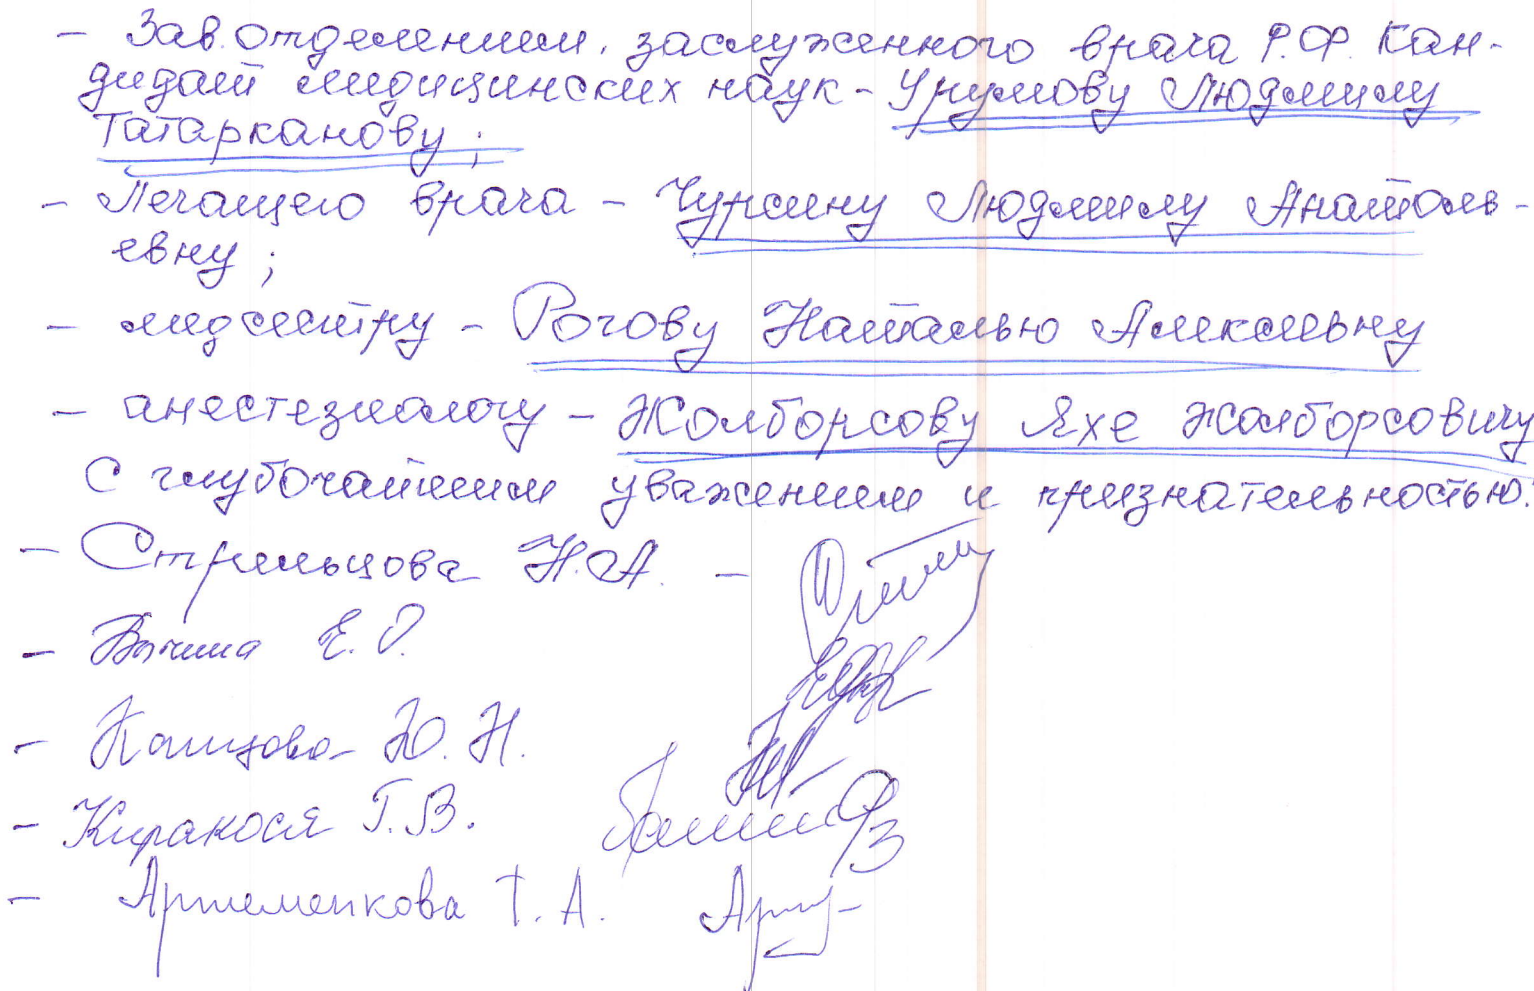 - Зав. отделением, заслуженного врача Р.Ф. Кан-
дидат медицинских наук - Урумову Людмилу
Татаркановну;
- Лечащего врача - Чурсину Людмилу Анатоль-
евну;
- медсестру - Рогову Наталью Алексеевну
- анестезиологу - Жолборсову Яхе Жолборсовичу
С глубочайшим уважением и признательностью:
- Стрельцова Н.А. -
- Е. О.
- Ю. Н.
- Киракося Г.В.
- Артеменкова Т. А.